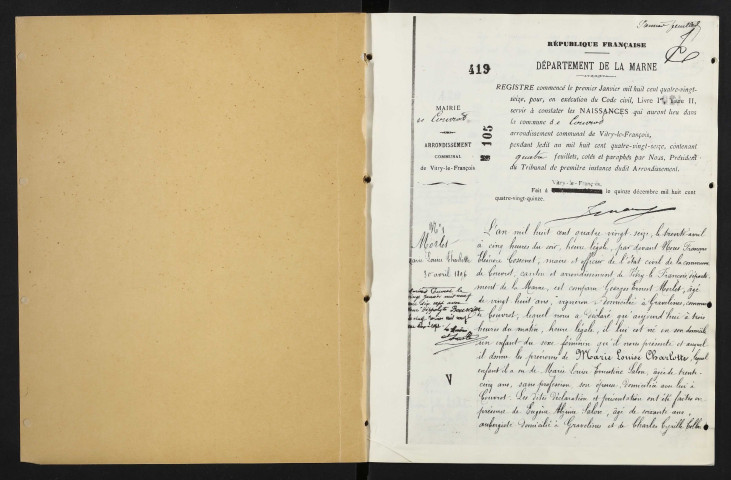 RÉPUBLIQUE FRANÇAISE
419
DÉPARTEMENT DE LA MARNE
REGISTRE commencé le premier Janvier mil huit cent quatre-vingt-
seize, pour, en exécution du Code civil, Livre Ier, Titre II,
servir à constater les NAISSANCES qui auront lieu dans
la commune de Couvrot
arrondissement communal de Vitry-le-François,
pendant ledit an mil huit cent quatre-vingt-seize, contenant
quatre feuillets, cotés et paraphés par Nous, Président
du Tribunal de première instance dudit Arrondissement.
MAIRIE
de Couvrot
ARRONDISSEMENT
COMMUNAL
de Vitry-le-François
105
Vitry-le-François,
Fait à le quinze décembre mil huit cent
quatre-vingt-quinze.
N° 1
Morlet
Marie Louise Charlotte
30 avril 1896
V
L'an mil huit cent quatre vingt seize, le trente avril
à cinq heures du soir, heure légale, par devant Nous François
maire et officier de l'état civil de la commune
de Couvrot, canton et arrondissement de Vitry le François, départe-
ment de la Marne, est comparu Georges Ernest Morlet, âgé
de vingt huit ans, vigneron domicilié à Gravelines, commune
de Couvrot, lequel nous a déclaré qu'aujourd'hui à trois
heures du matin, heure légale, il lui est né en son domicile
un enfant du sexe féminin qu'il nous présente et auquel
il donne les prénoms de Marie Louise Charlotte, lequel
enfant il a eu de Marie Louise Ernestine Salon, âgée de trente-
cinq ans, sans profession, son épouse domiciliée avec lui à
Couvrot. Les dites déclaration et présentation ont été faites en
présence de Eugène Salon, âgé de soixante ans,
aubergiste domicilié à Gravelines et de Charles Cyrille